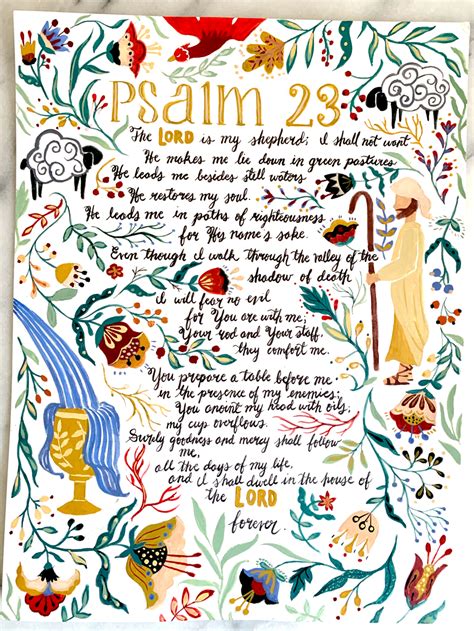 Psalm 23
The LORD is my shepherd; I shall not want
He makes me lie down in green pastures
He leads me besides still waters
He restores my soul.
He leads me in paths of righteousness
for His name's sake.
Even though I walk through the valley of the
shadow of death
I will fear no evil
for You are with me;
Your rod and Your staff,
they comfort me.
You prepare a table before me
in the presence of my enemies;
You anoint my head with oils;
my cup overflows.
Surely goodness and mercy shall follow
me,
all the days of my life,
and I shall dwell in the house of
the LORD
forever.